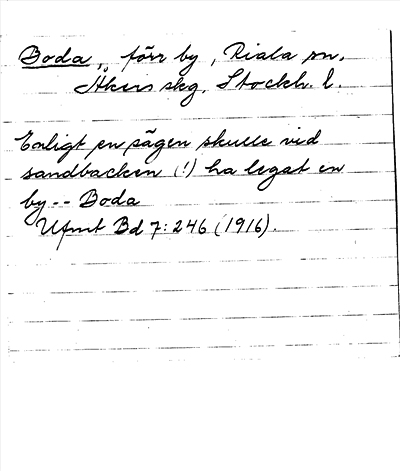 Boda, förr by, Riala sn,
Åkers skg, Stockh. l.
Enligt en sägen skulle vid
sandbacken (!) ha legat en
by -- Boda
Ufmt Bd 7: 246 (1916).